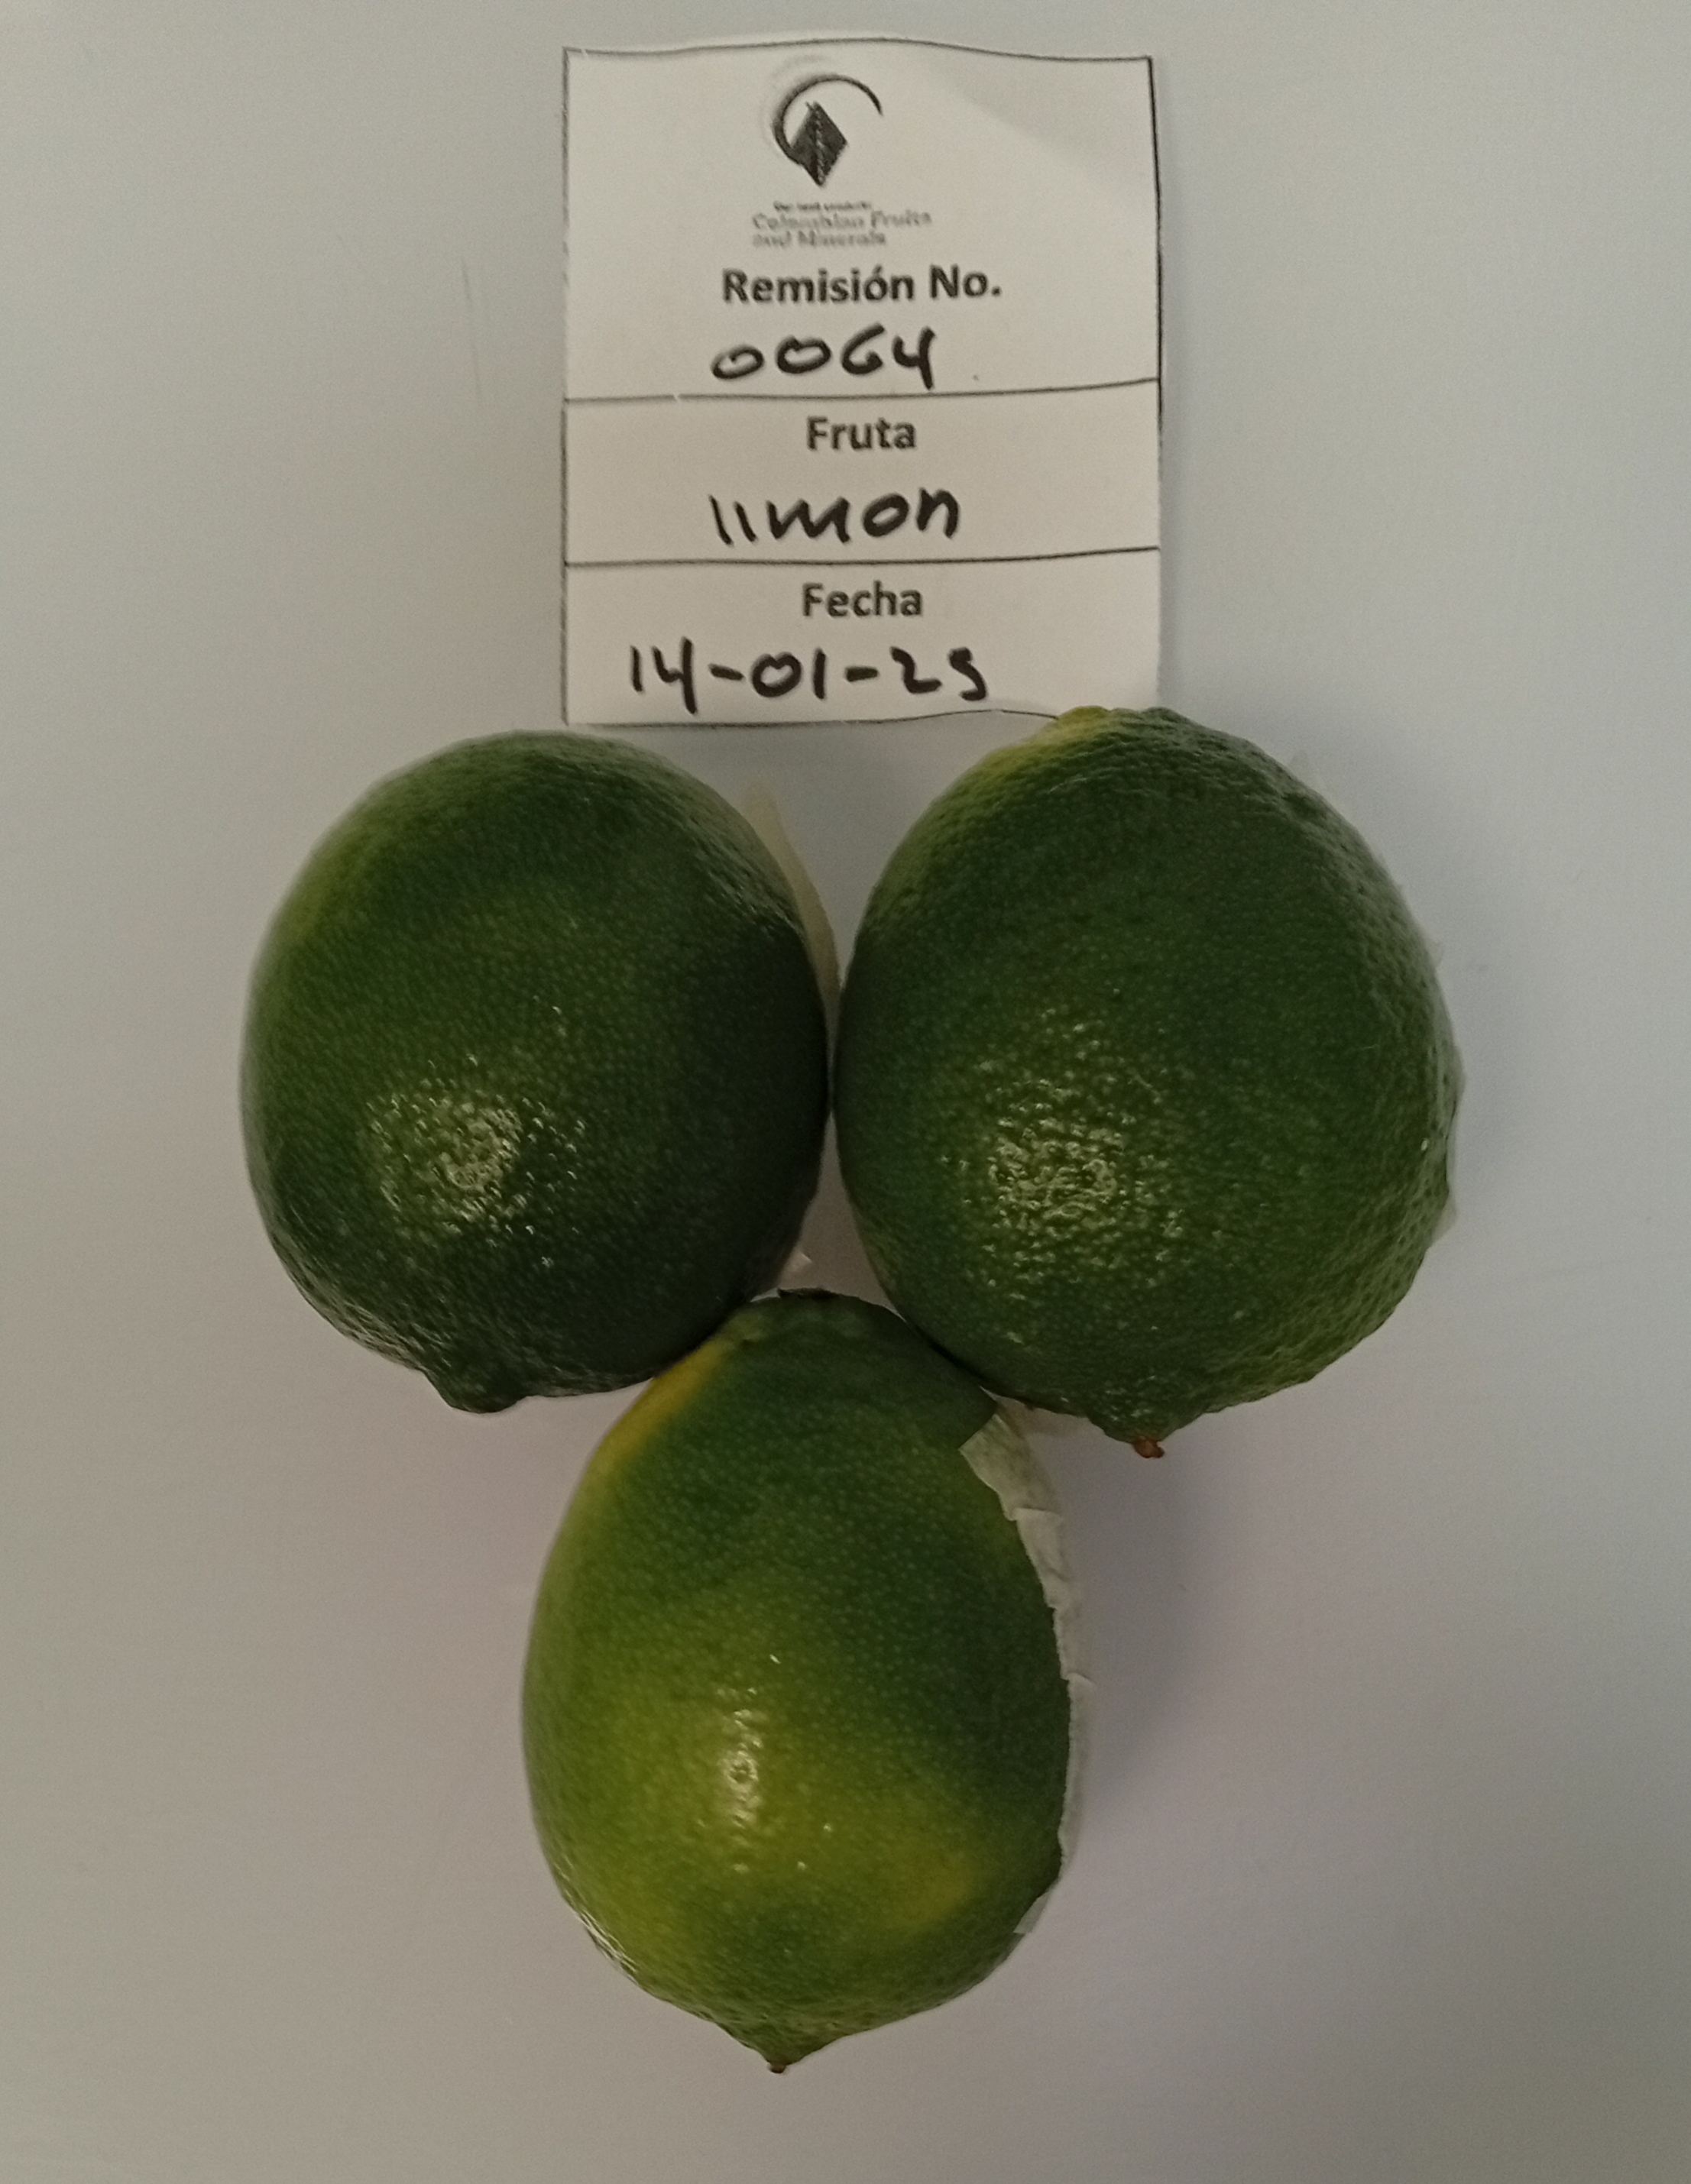 Colombian Fruits
and Minerals
Remisión No.
0064
Fruta
limon
Fecha
14-01-25